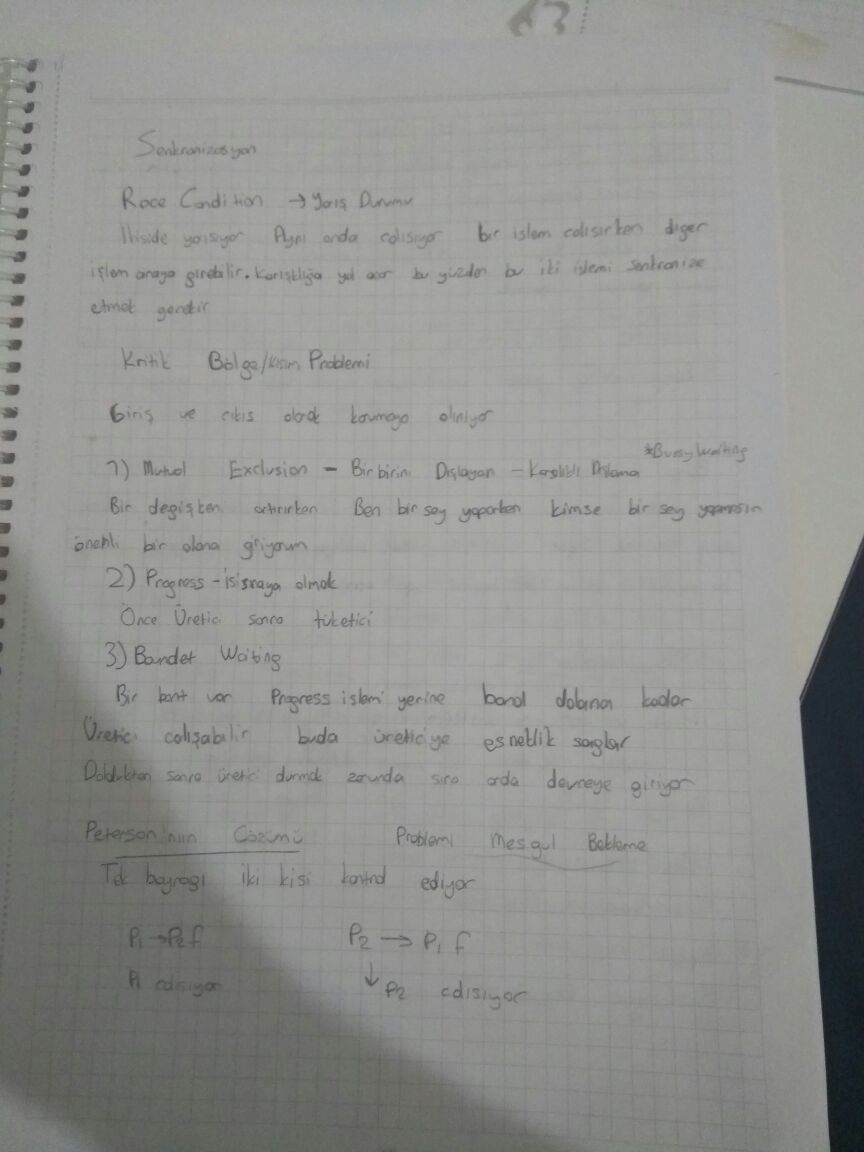 Senkronizasyon
Race Condition → Yarış Durumu
İkiside yarısıyor Aynı anda calısıyor bir islem calısırken diger
işlem araya girebilir. Karışıklığa yol acar bu yüzden bu iki islemi senkronize
etmek gerekir
Kritik Bölge/Kısım Problemi
Giriş ve cıkıs olarak korumaya alınıyor
*Busy Waiting
1) Mutual Exclusion - Birbirini Dışlayan - Karşılıklı Dışlama
Bir değişken artırırken Ben bir sey yaparken kimse bir sey yapmasın
önemli bir alana giriyorum
2) Progress - isi sıraya almak
Önce Üretici sonra tüketici
3) Bandet Waiting
Bir bant var Progress islemi yerine band dolana kadar
Üretici calışabilir buda üreticiye esneklik sağlar
Dolduktan sonra üretici durmak zorunda sıra orda devreye giriyor
Peterson'nun Cözümü Problemi Mesgul Bekleme
Tek bayragı iki kisi kontrol ediyor
P1 → P2 f P2 → P1 f
P1 calısıyor ↓ P2 calısıyor